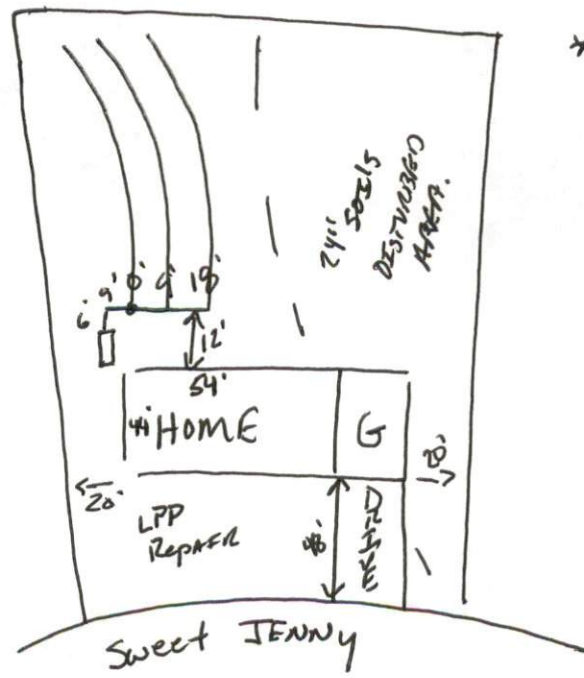 *
24" SOILS
DISTURBED
AREA.
6' 9' 0' 9' 18'
12'
54'
44' HOME
G
20'
20'
LPP
REPAIR
48'
DRIVE
Sweet JENNY